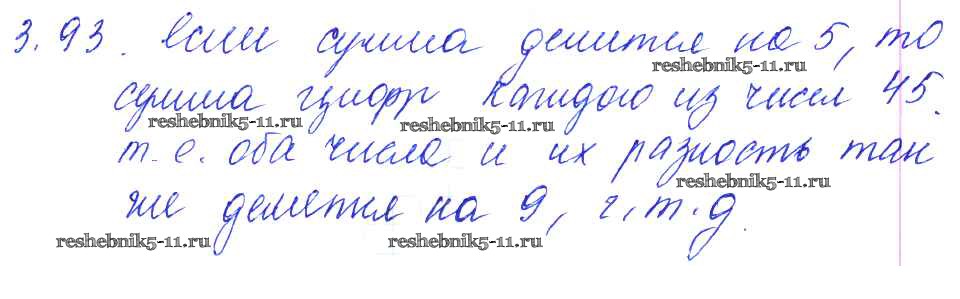 3.93. Если сумма делится на 5, то
reshebnik5-11.ru
сумма цифр каждого из чисел 45.
reshebnik5-11.ru reshebnik5-11.ru
т.е. оба числа и их разность так
reshebnik5-11.ru
же делется на 9, ч.т.д.
reshebnik5-11.ru reshebnik5-11.ru